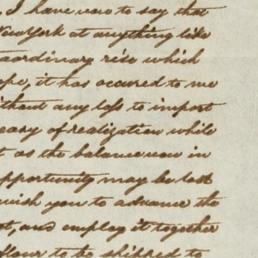 , I have now to say that
New York at anything like
traordinary rise which
ope, it has occured to me
ithout any loss to import
eary of realization while
t as the balance now in
pportunity may be lost
wish you to advance the
st, and employ it together
flour to be shipped to